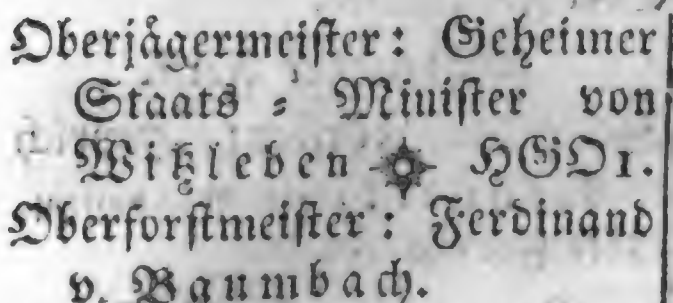 Oberjägermeister: Geheimer
Staats = Minister von
Witzleben HGO1.
Oberforstmeister: Ferdinand
v. Baumbach.